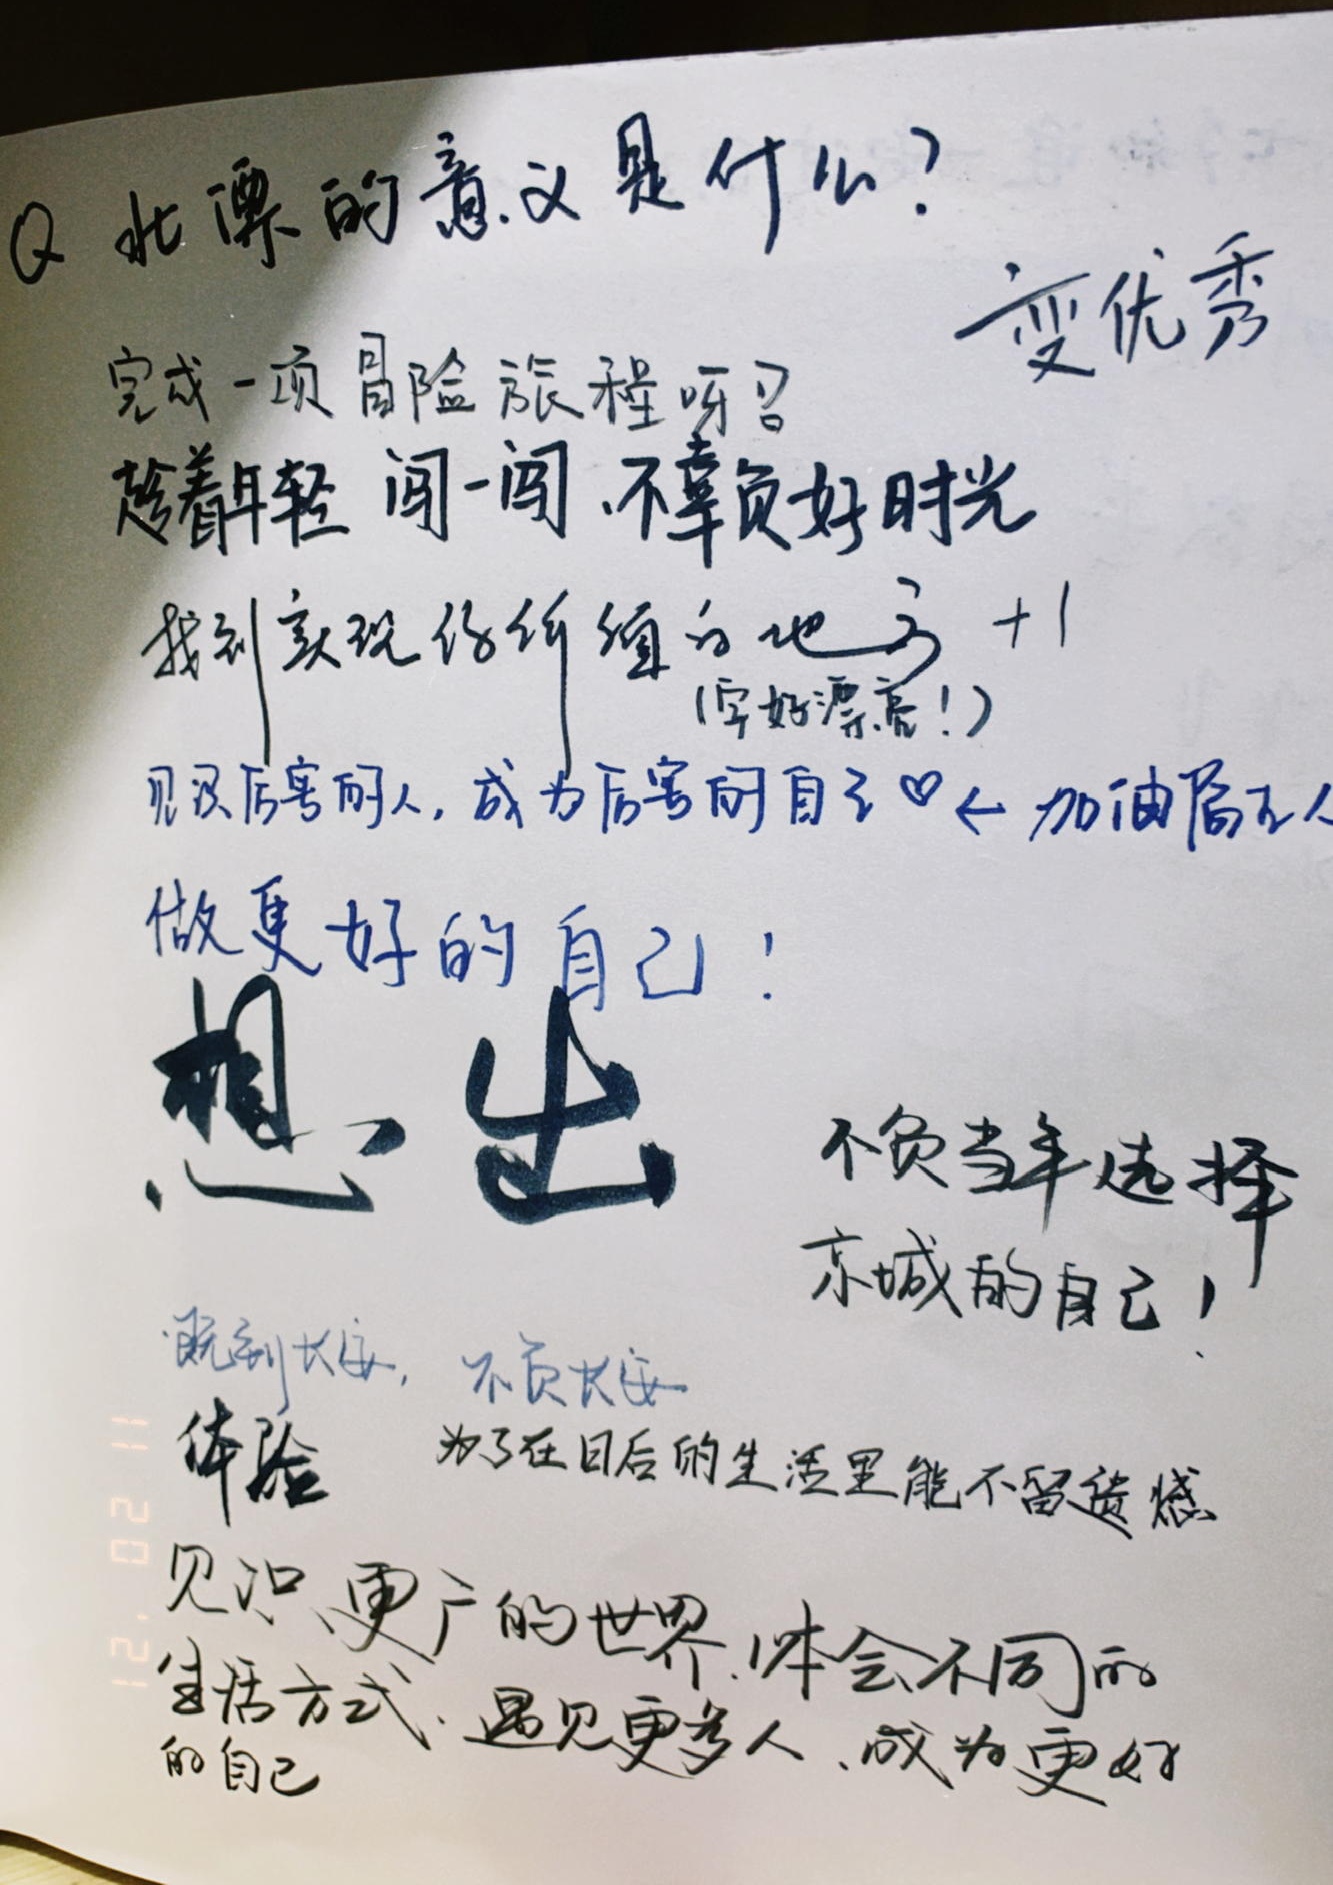 Q 北漂的意义是什么?
变优秀
完成一项冒险旅程呀?
趁着年轻 闯一闯、不辜负好时光
找到实现你价值的地方 +1
(字好漂亮!)
见识厉害的人，成为厉害的自己♡ ← 加油 人
做更好的自己!
想出
不负当年选择
京城的自己!
既到长安，不负长安
体验 为了在日后的生活里能不留遗憾
见识更广的世界、体会不同的
生活方式、遇见更多人、成为更好
的自己
11 20 '21